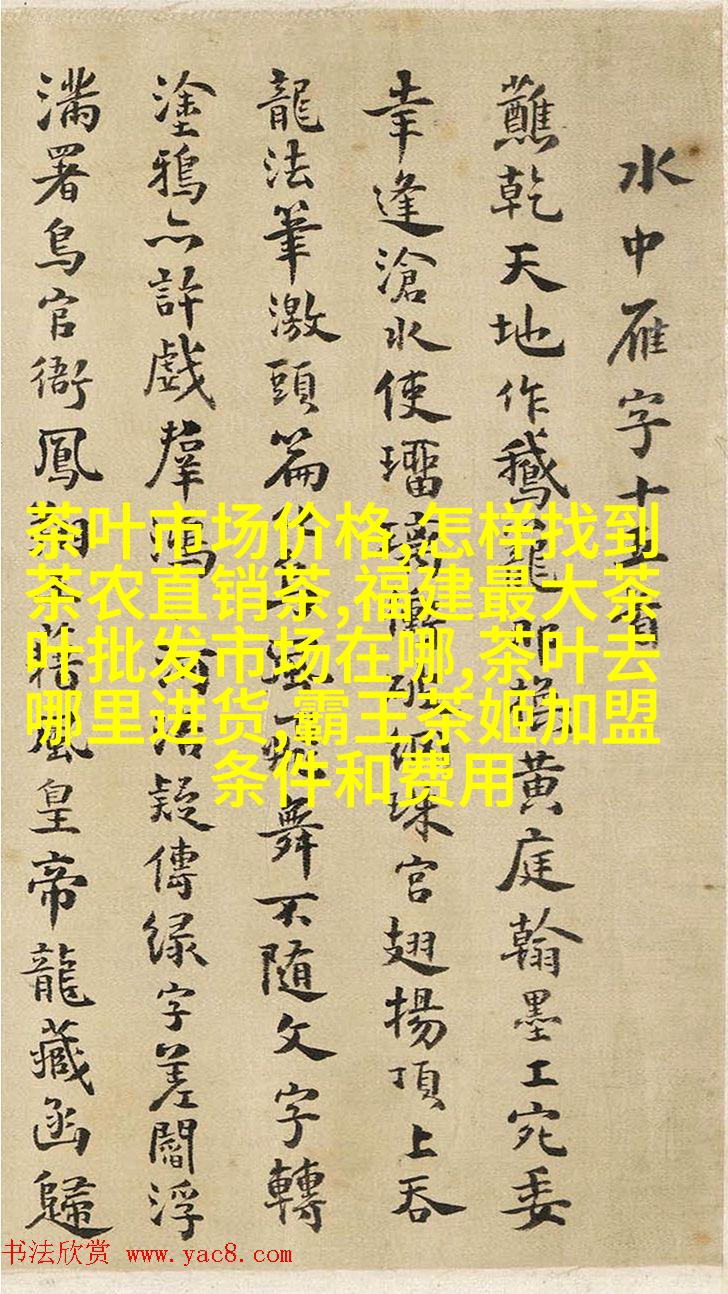 水中雁字十五首
蘸乾天地作鵝
黃庭翰墨工宛委
幸逢滄水使
珠宮翅揚頂上吞
龍法筆激頭篇
舞不随文字轉
塗鴉亦許戲羣鴻
疑傳緑字差閻浮
满署鳥官銜鳳
皇帝龍藏函歸
茶叶市场价格,怎样找到
茶农直销茶,福建最大茶
叶批发市场在哪,茶叶去
哪里进货,霸王茶姬加盟
条件和费用
书法欣赏 www.yac8.com